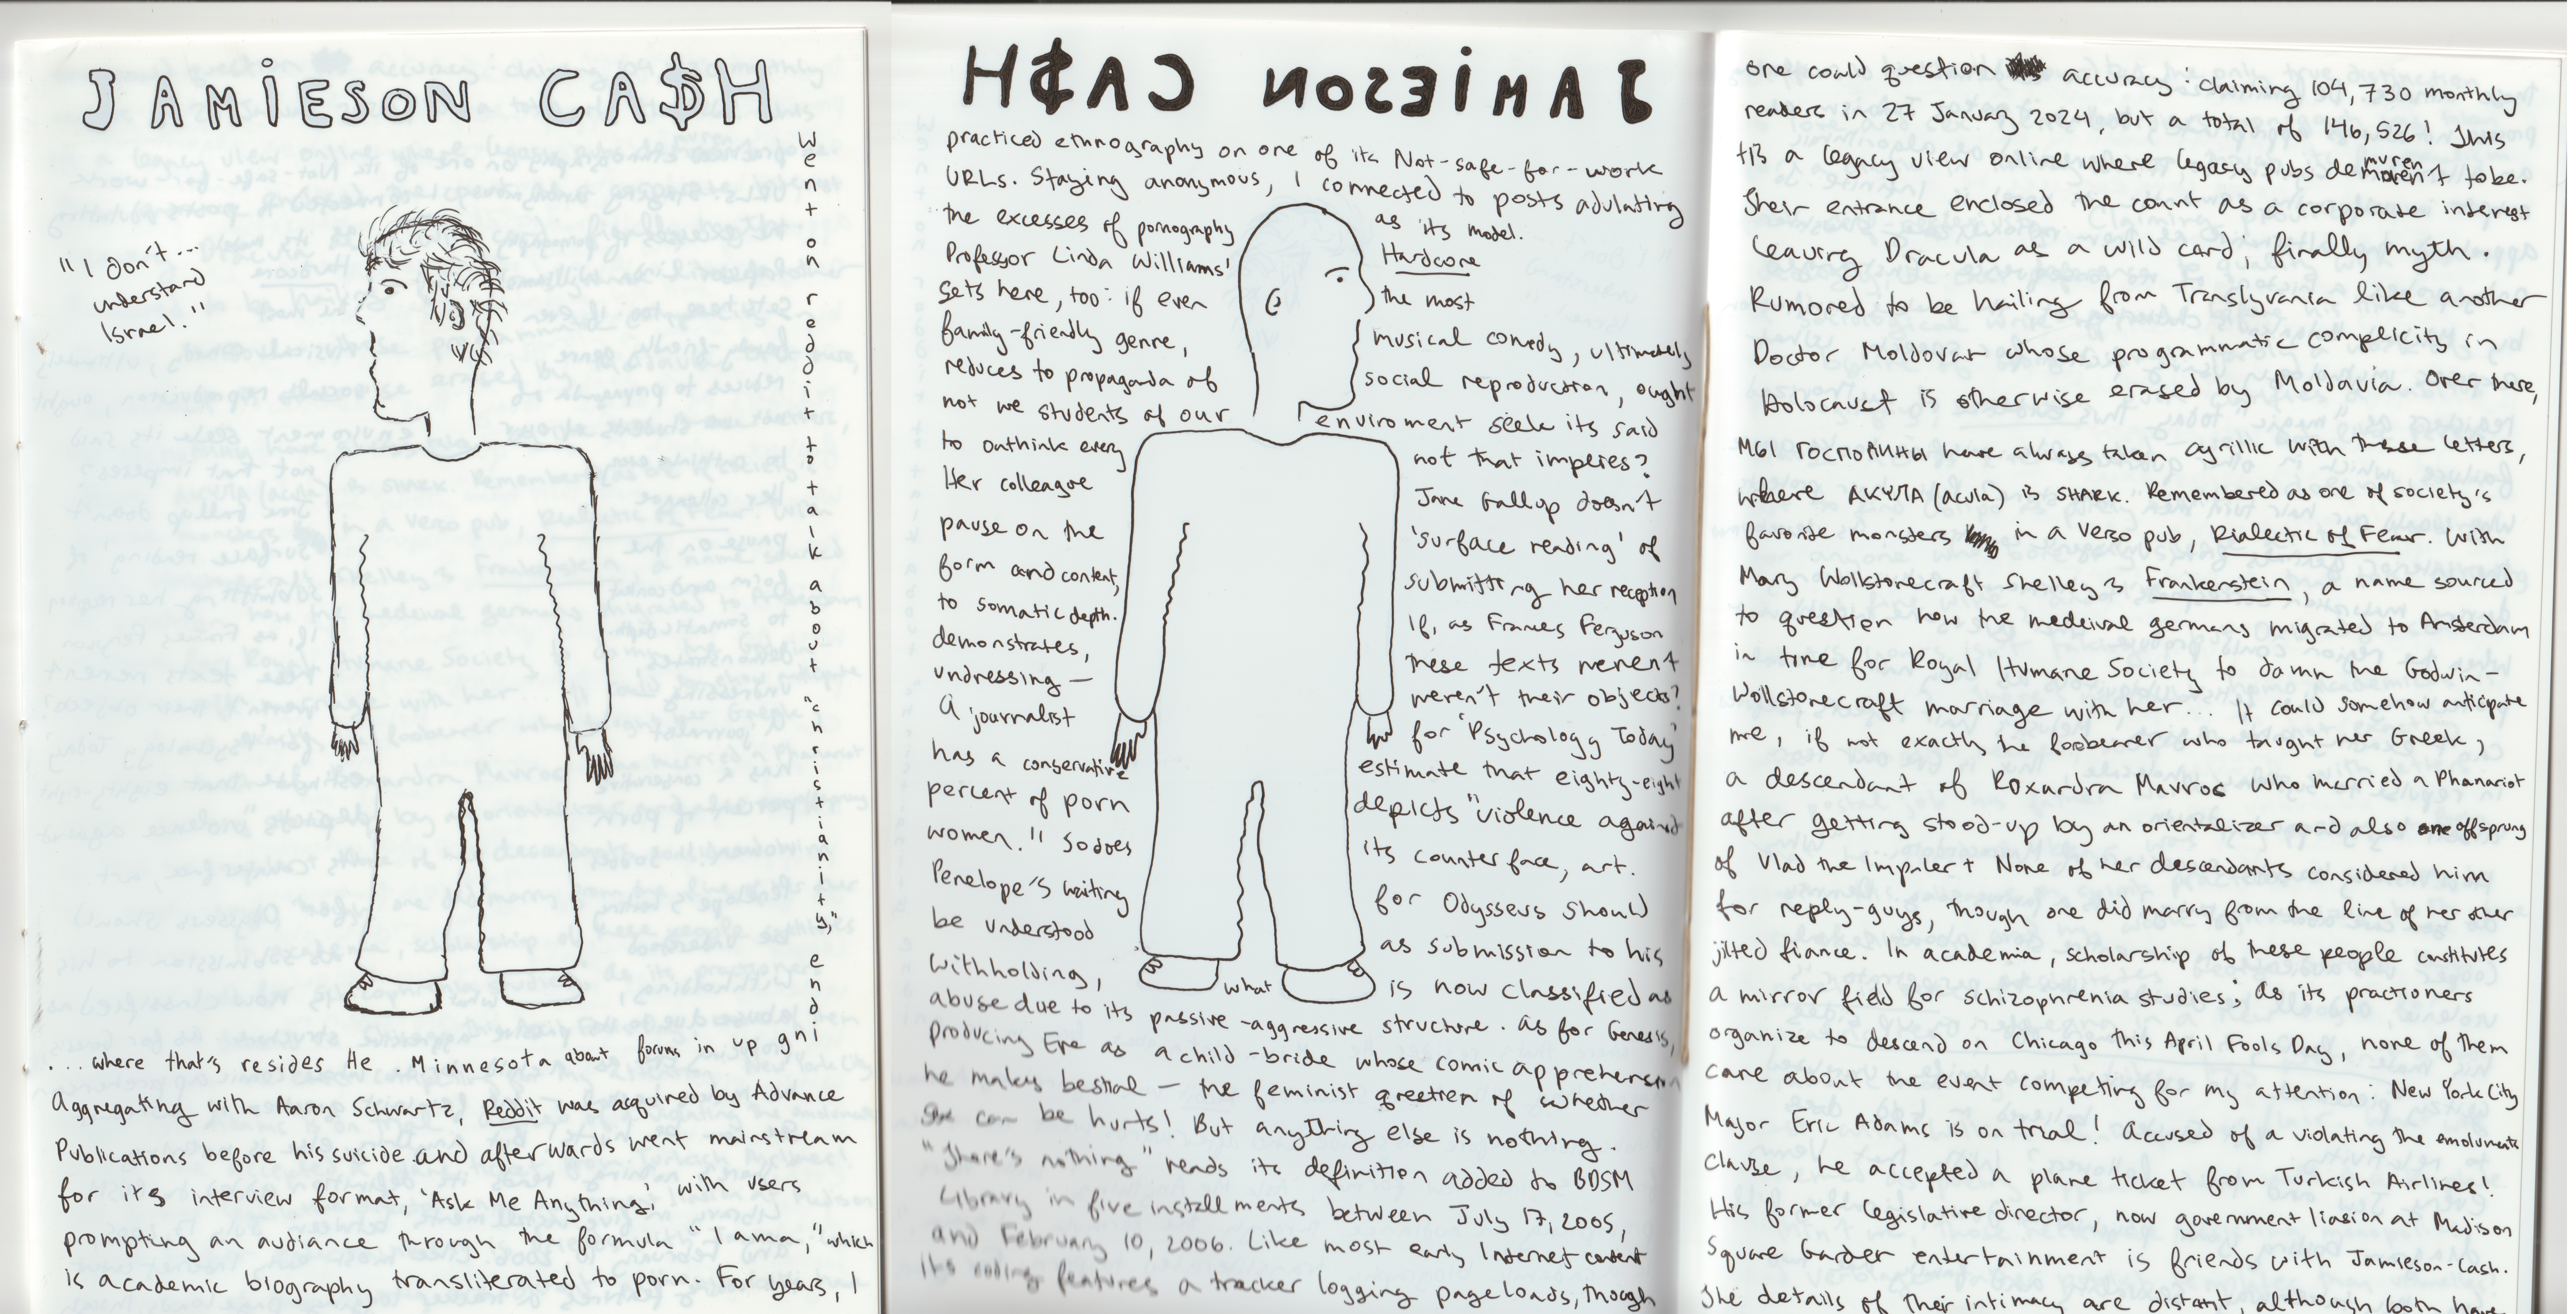 JAMIESON CA$H
"I don't...
understand
Israel."
went on reddit to talk about "christianity," end
...where that's resides He .Minnesota about forums in up gni
Aggregating with Aaron Schwartz, Reddit was acquired by Advance
Publications before his suicide and afterwards went mainstream
for its interview format, 'Ask Me Anything,' with users
prompting an audiance through the formula "I ama," which
is academic biography transliterated to porn. For years, I
JAMIESON CA$H
practiced ethnography on one of its Not-safe-for-work
URLs. Staying anonymous, I connected to posts adulating
the excesses of pornography as its model.
Professor Linda Williams' Hardcore
sets here, too: if even the most
family-friendly genre, musical comedy, ultimately
reduces to propaganda of social reproduction, ought
not we students of our enviroment seek its said
to outhink every not that implies?
Her colleague Jane Gallop doesn't
pause on the 'surface reading' of
form and content, submitting her reception
to somatic depth. If, as Frances Ferguson
demonstrates, these texts weren't
undressing— weren't their objects?
A journalist for 'Psychology Today'
has a conservative estimate that eighty-eight
percent of porn depicts "violence against
women." So does its counterface, art.
Penelope's waiting for Odysseus should
be understood as submission to his
withholding, what is now classified as
abuse due to its passive-aggressive structure. As for Genesis,
producing Eve as a child-bride whose comic apprehension
he makes bestial — the feminist question of whether
she can be hurts! But anything else is nothing.
"There's nothing" reads its definition added to BDSM
Library in five installments between July 17, 2005,
and February 10, 2006. Like most early Internet content
its coding features a tracker logging pageloads, though
one could question accuracy: claiming 104,730 monthly
readers in 27 January 2024, but a total of 146,526! This
is a legacy view online where legacy pubs demuren't to be.
Their entrance enclosed the count as a corporate interest
leaving Dracula as a wild card; finally myth.
Rumored to be hailing from Translyvania like another
Doctor Moldovar whose programmatic complicity in
Holocaust is otherwise erased by Moldavia. Over there,
МЫ ГОСПОДИНЫ have always taken cyrillic with these letters,
where АКУЛА (acula) is SHARK. Remembered as one of society's
favorite monsters in a Verso pub, Dialectic of Fear. With
Mary Wollstonecraft Shelley's Frankenstein, a name sourced
to question how the medeival germans migrated to Amsterdam
in time for Royal Humane Society to damn the Godwin-
Wollstonecraft marriage with her... It could somehow anticipate
me, if not exactly the forbearer who taught her Greek,
a descendant of Roxandra Mavros who married a Phanariot
after getting stood-up by an orientalizer and also one offsprung
of Vlad the Impaler + None of her descendants considered him
for reply-guys, though one did marry from the line of her other
jilted fiance. In academia, scholarship of these people constitutes
a mirror field for schizophrenia studies; as its practioners
organize to descend on Chicago this April Fools Day, none of them
care about the event competing for my attention: New York City
Major Eric Adams is on trial! Accused of a violating the emoluments
clause, he accepted a plane ticket from Turkish Airlines!
His former legislative director, now government liasion at Madison
Square Garden entertainment is friends with Jamieson-Cash.
The details of their intimacy are distant, although both have